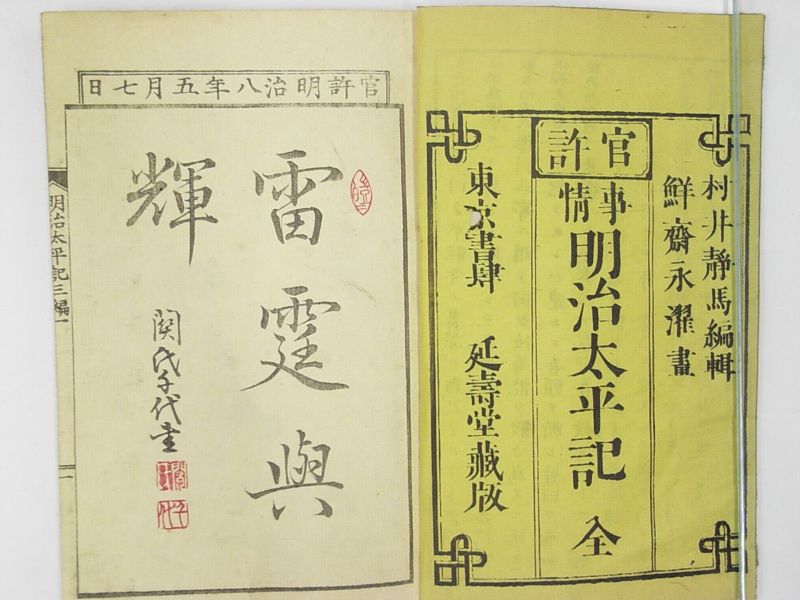 官許
村井静馬編輯
鮮齋永濯畫
事情明治太平記 全
東京書肆 延壽堂藏版
官許明治八年五月七日
雷霆與
輝
関氏千代書
明治太平記三編一